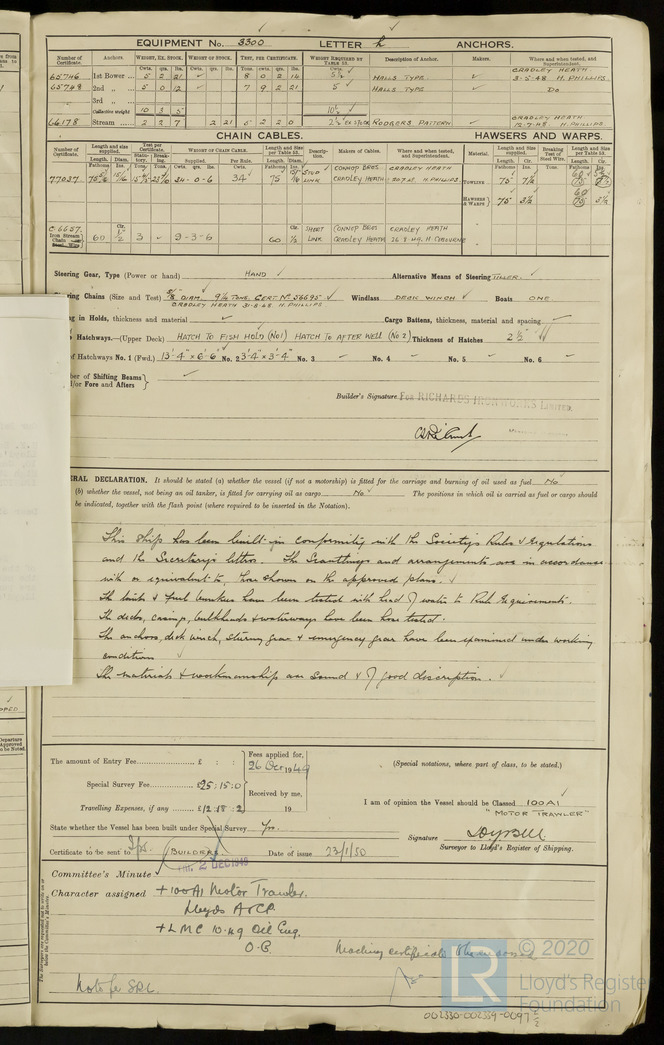 EQUIPMENT No. 3300 LETTER h ANCHORS.
Number of Certificate. Anchors. WEIGHT, EX. STOCK. WEIGHT OF STOCK. TEST, PER CERTIFICATE. WEIGHT REQUIRED BY TABLE 53. Description of Anchor. Makers. Where and when tested, and Superintendent.
65746 1st Bower 5 2 21 ✓ 8 0 2 14 5½ ✓ HALLS TYPE ✓ CRADLEY HEATH. 3-5-48 H. PHILLIPS
65748 2nd „ 5 0 12 ✓ 7 9 2 21 5 ✓ HALLS TYPE ✓ Do
3rd „
Collective weight 10 3 5 10½ ✓
66178 Stream 2 2 7 2 21 5 2 2 0 2½ EX STOCK RODGERS PATTERN ✓ CRADLEY HEATH 12-7-48. H. PHILLIPS
CHAIN CABLES. HAWSERS AND WARPS.
Number of Certificate. Length and size supplied. Test per Certificate. WEIGHT OF CHAIN CABLE. Length and size per Table 53. Description. Makers of Cables. Where and when tested, and Superintendent. Material. Length and size supplied. Breaking Test of Steel Wire. Length and Size per Table 53.
Length. Diam. Statutory. Breaking. Supplied. Per Rule. Length. Diam. Length. Cir. Length. Cir.
77037 34-0-6 34 75 STUD LINK CONNOP BROS CRADLEY HEATH CRADLEY HEATH H. PHILLIPS. TOWLINE 75
HAWSERS & WARPS 75
C 6657. Iron Stream Chain or Steel Wire 60 ½ 3 - 9-3-6 60 ½ SHORT LINK CONNOP BROS CRADLEY HEATH CRADLEY HEATH 26-8-49. H. C
Steering Gear, Type (Power or hand) HAND ✓ Alternative Means of Steering TILLER. ✓
ring Chains (Size and Test) 5/8 DIAM. TONS. CERT. No 56695 ✓ Windlass DECK WINCH ✓ Boats ONE
CRADLEY HEATH 31-8-48 H. PHILLIPS
ng in Holds, thickness and material ✓ Cargo Battens, thickness, material and spacing ✓
Hatchways.—(Upper Deck) HATCH TO FISH HOLD (No 1) HATCH TO AFTER WELL (No 2) Thickness of Hatches 2½" ✓
of Hatchways No. 1 (Fwd.) 13'-4" × 6'-6" No. 2 3'-4" × 3'-4" No. 3 No. 4 No. 5 No. 6
ber of Shifting Beams
/or Fore and Afters ✓
Builder's Signature FOR RICHARDS IRONWORKS LIMITED.
RAL DECLARATION. It should be stated (a) whether the vessel (if not a motorship) is fitted for the carriage and burning of oil used as fuel No
(b) whether the vessel, not being an oil tanker, is fitted for carrying oil as cargo No ✓ The positions in which oil is carried as fuel or cargo should
be indicated, together with the flash point (where required to be inserted in the Notation).
This ship has been built in conformity with the Society's Rules & regulations
and the Secretary's letters. The Scantlings and arrangements are in accordance
with or equivalent to, those shown on the approved plans. ✓
The tanks & fuel bunkers have been tested with head of water to Rule requirements.
The decks, casing, bulkheads & waterways have been hose tested.
The anchors, deck winch, steering gear & emergency gear have been examined under working
condition ✓
The materials & workmanship are sound & of good discription. ✓
The amount of Entry Fee £ : : Fees applied for, 26 Oct 1949 (Special notations, where part of class, to be stated.)
Special Survey Fee £25:15:0 Received by me,
Travelling Expenses, if any £12:18:2 19 I am of opinion the Vessel should be Classed 100A1
"MOTOR TRAWLER"
State whether the Vessel has been built under Special Survey Yes.
Signature
Certificate to be sent to (BUILDERS) Date of issue 23/1/50 Surveyor to Lloyd's Register of Shipping.
Committee's Minute 2 DEC 1949
Character assigned +100A1 Motor Trawler.
Lloyds A&CP
+LMC 10.49 Oil Eng.
O.G.
Note for SRL.
LR © 2020
Lloyd's Register
Foundation
002330-002339-0097